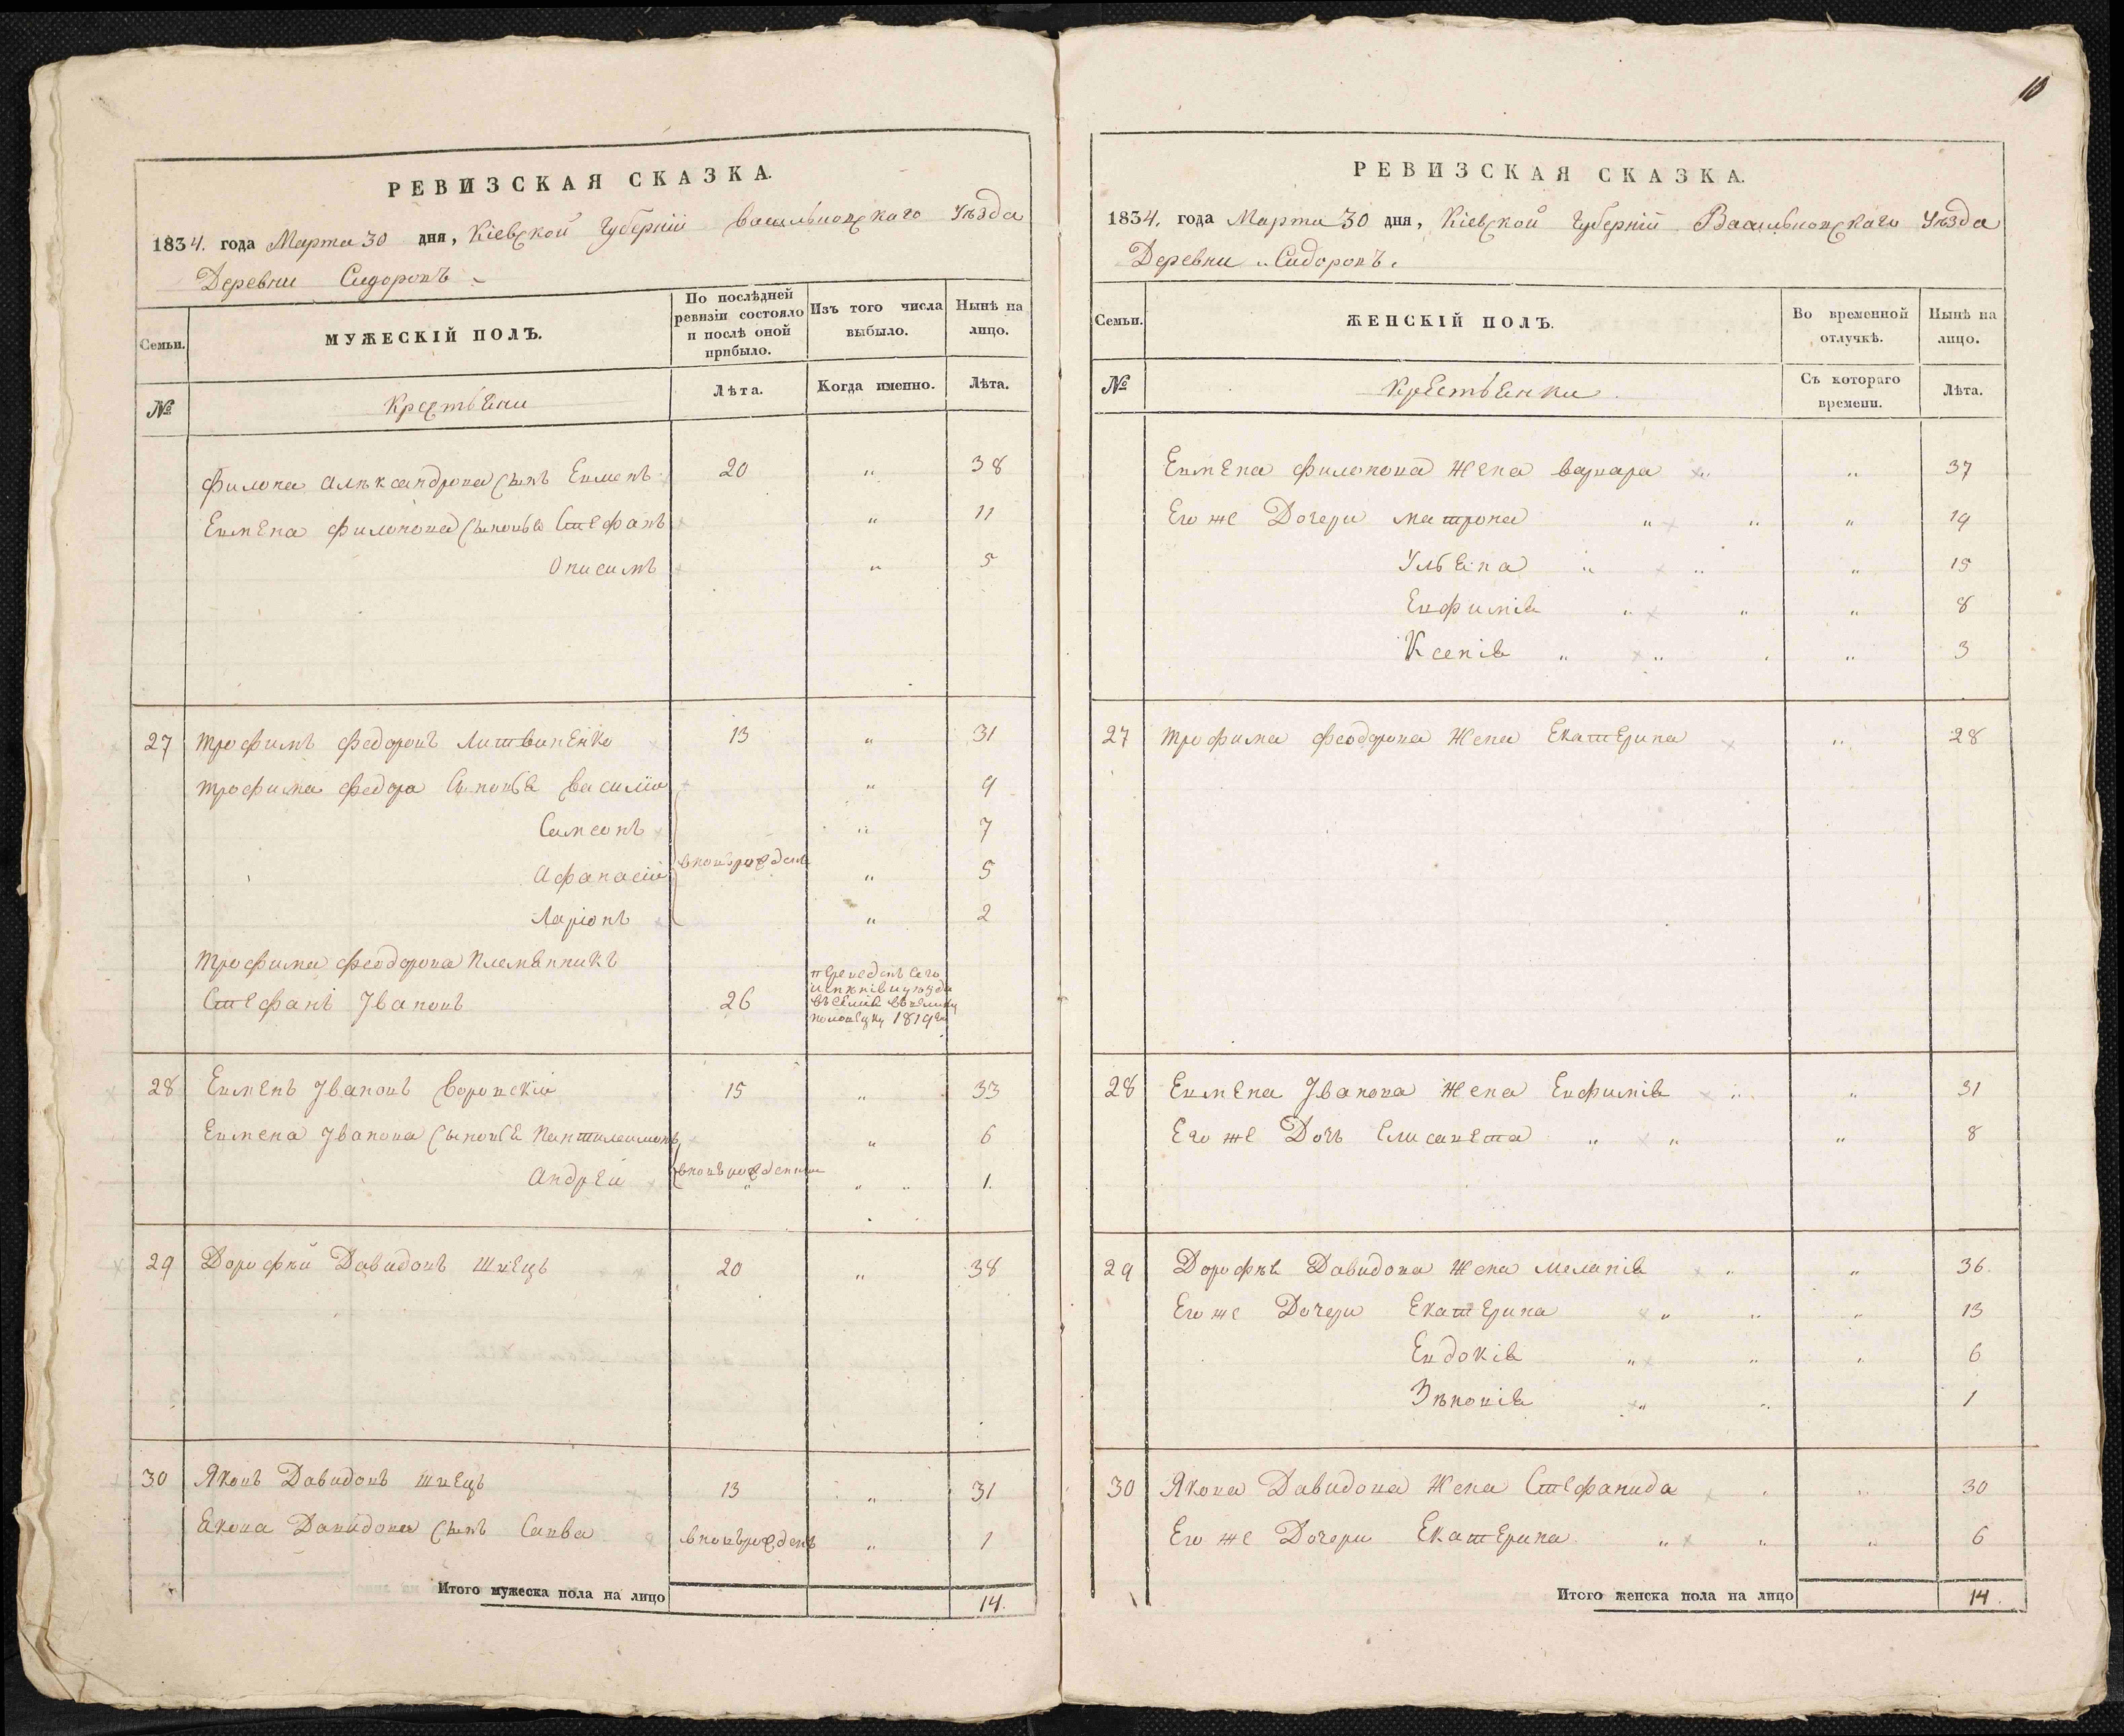 РЕВИЗСКАЯ СКАЗКА.
1834. года Марта 30 дня, Кіевской Губерніи Васильковскаго Уѣзда
Деревни Сидоровъ
Семьи.
МУЖЕСКІЙ ПОЛЪ.
По послѣдней ревизіи состояло и послѣ оной прибыло.
Изъ того числа выбыло.
Нынѣ на лицо.
№
Крестьяни
Лѣта.
Когда именно.
Лѣта.
Филона Алѣксандрова Сынъ Евменъ 20 " 38
Евмена Филонова Сыновья Стефанъ " 11
Онисимъ " 5
27 Трофимъ Федоровъ Литвиненко 13 " 31
Трофима Федора Сыновья Василій " 9
Симеонъ " 7
Афанасій вновьрожден " 5
Ларіонъ " 2
Трофима Феодорова Племянникъ
Стефанъ Ивановъ 26
переведенъ сего
имѣнія уѣзда
въ
1819
28 Евменъ Ивановъ Воровскій 15 " 33
Евмена Иванова Сыновья Пантилеимонъ " 6
Андрей вновьрожденныи " " " 1.
29 Дорофѣй Давидовъ Швецъ 20 " 38
30 Яковъ Давидовъ Швецъ 13 " 31
Якова Давидова Сынъ Савва вновьрожденъ " 1
Итого мужеска пола на лицо 14.
10
РЕВИЗСКАЯ СКАЗКА.
1834. года Марта 30 дня, Кіевской Губерніи Васильковскаго Уѣзда
Деревни Сидоровъ.
Семьи.
ЖЕНСКІЙ ПОЛЪ.
Во временной отлучкѣ.
Нынѣ на лицо.
№
Крестьянки
Съ котораго времени.
Лѣта.
Евмена Филонова Жена Варвара " " 37
Его же Дочери Матрона " " " 19
Ульяна " " " 15
Евфимія " " " 8
Ксенія " " " 3
27 Трофима Феодорова Жена Екатерина " 28
28 Евмена Иванова Жена Евфимія " " 31
Его же Дочь Елисавета " " " 8
29 Дорофѣя Давидова Жена Меланія " " 36.
Его же Дочери Екатерина " " " 13
Евдокія " " " 6
Зѣновія " " 1
30 Якова Давидова Жена Стефанида " 30
Его же Дочери Екатерина " " " 6
Итого женска пола на лицо 14.